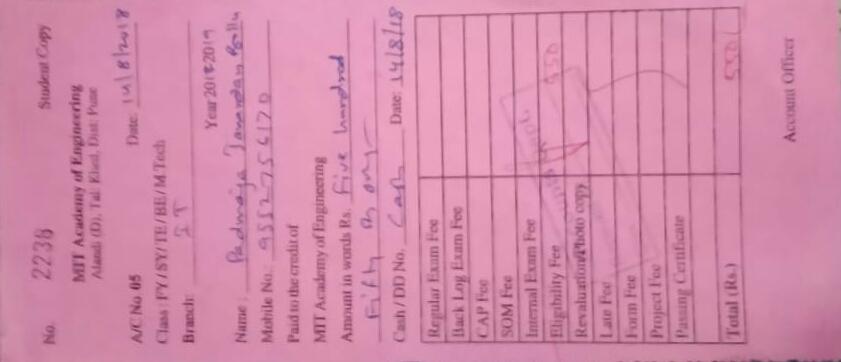 No. 2238 Student Copy
MIT Academy of Engineering
Alandi (D), Tal: Khed, Dist: Pune
A/C No 05 Date: 14/8/2018
Class : FY/SY/TE/BE/M.Tech
Branch: IT Year 2018-2019
Name : Padmaja Janardan
Mobile No.: 9552756170
Paid to the credit of
MIT Academy of Engineering
Amount in words Rs. Five hundred
Fifty Rs only
Cash / DD No. Cash Date: 14/8/18
Regular Exam Fee
Back Log Exam Fee
CAP Fee
SOM Fee
Internal Exam Fee
Eligibility Fee 550
Revaluation/Photo copy
Late Fee
Form Fee
Project Fee
Passing Certificate
Total (Rs.) 550/
Account Officer